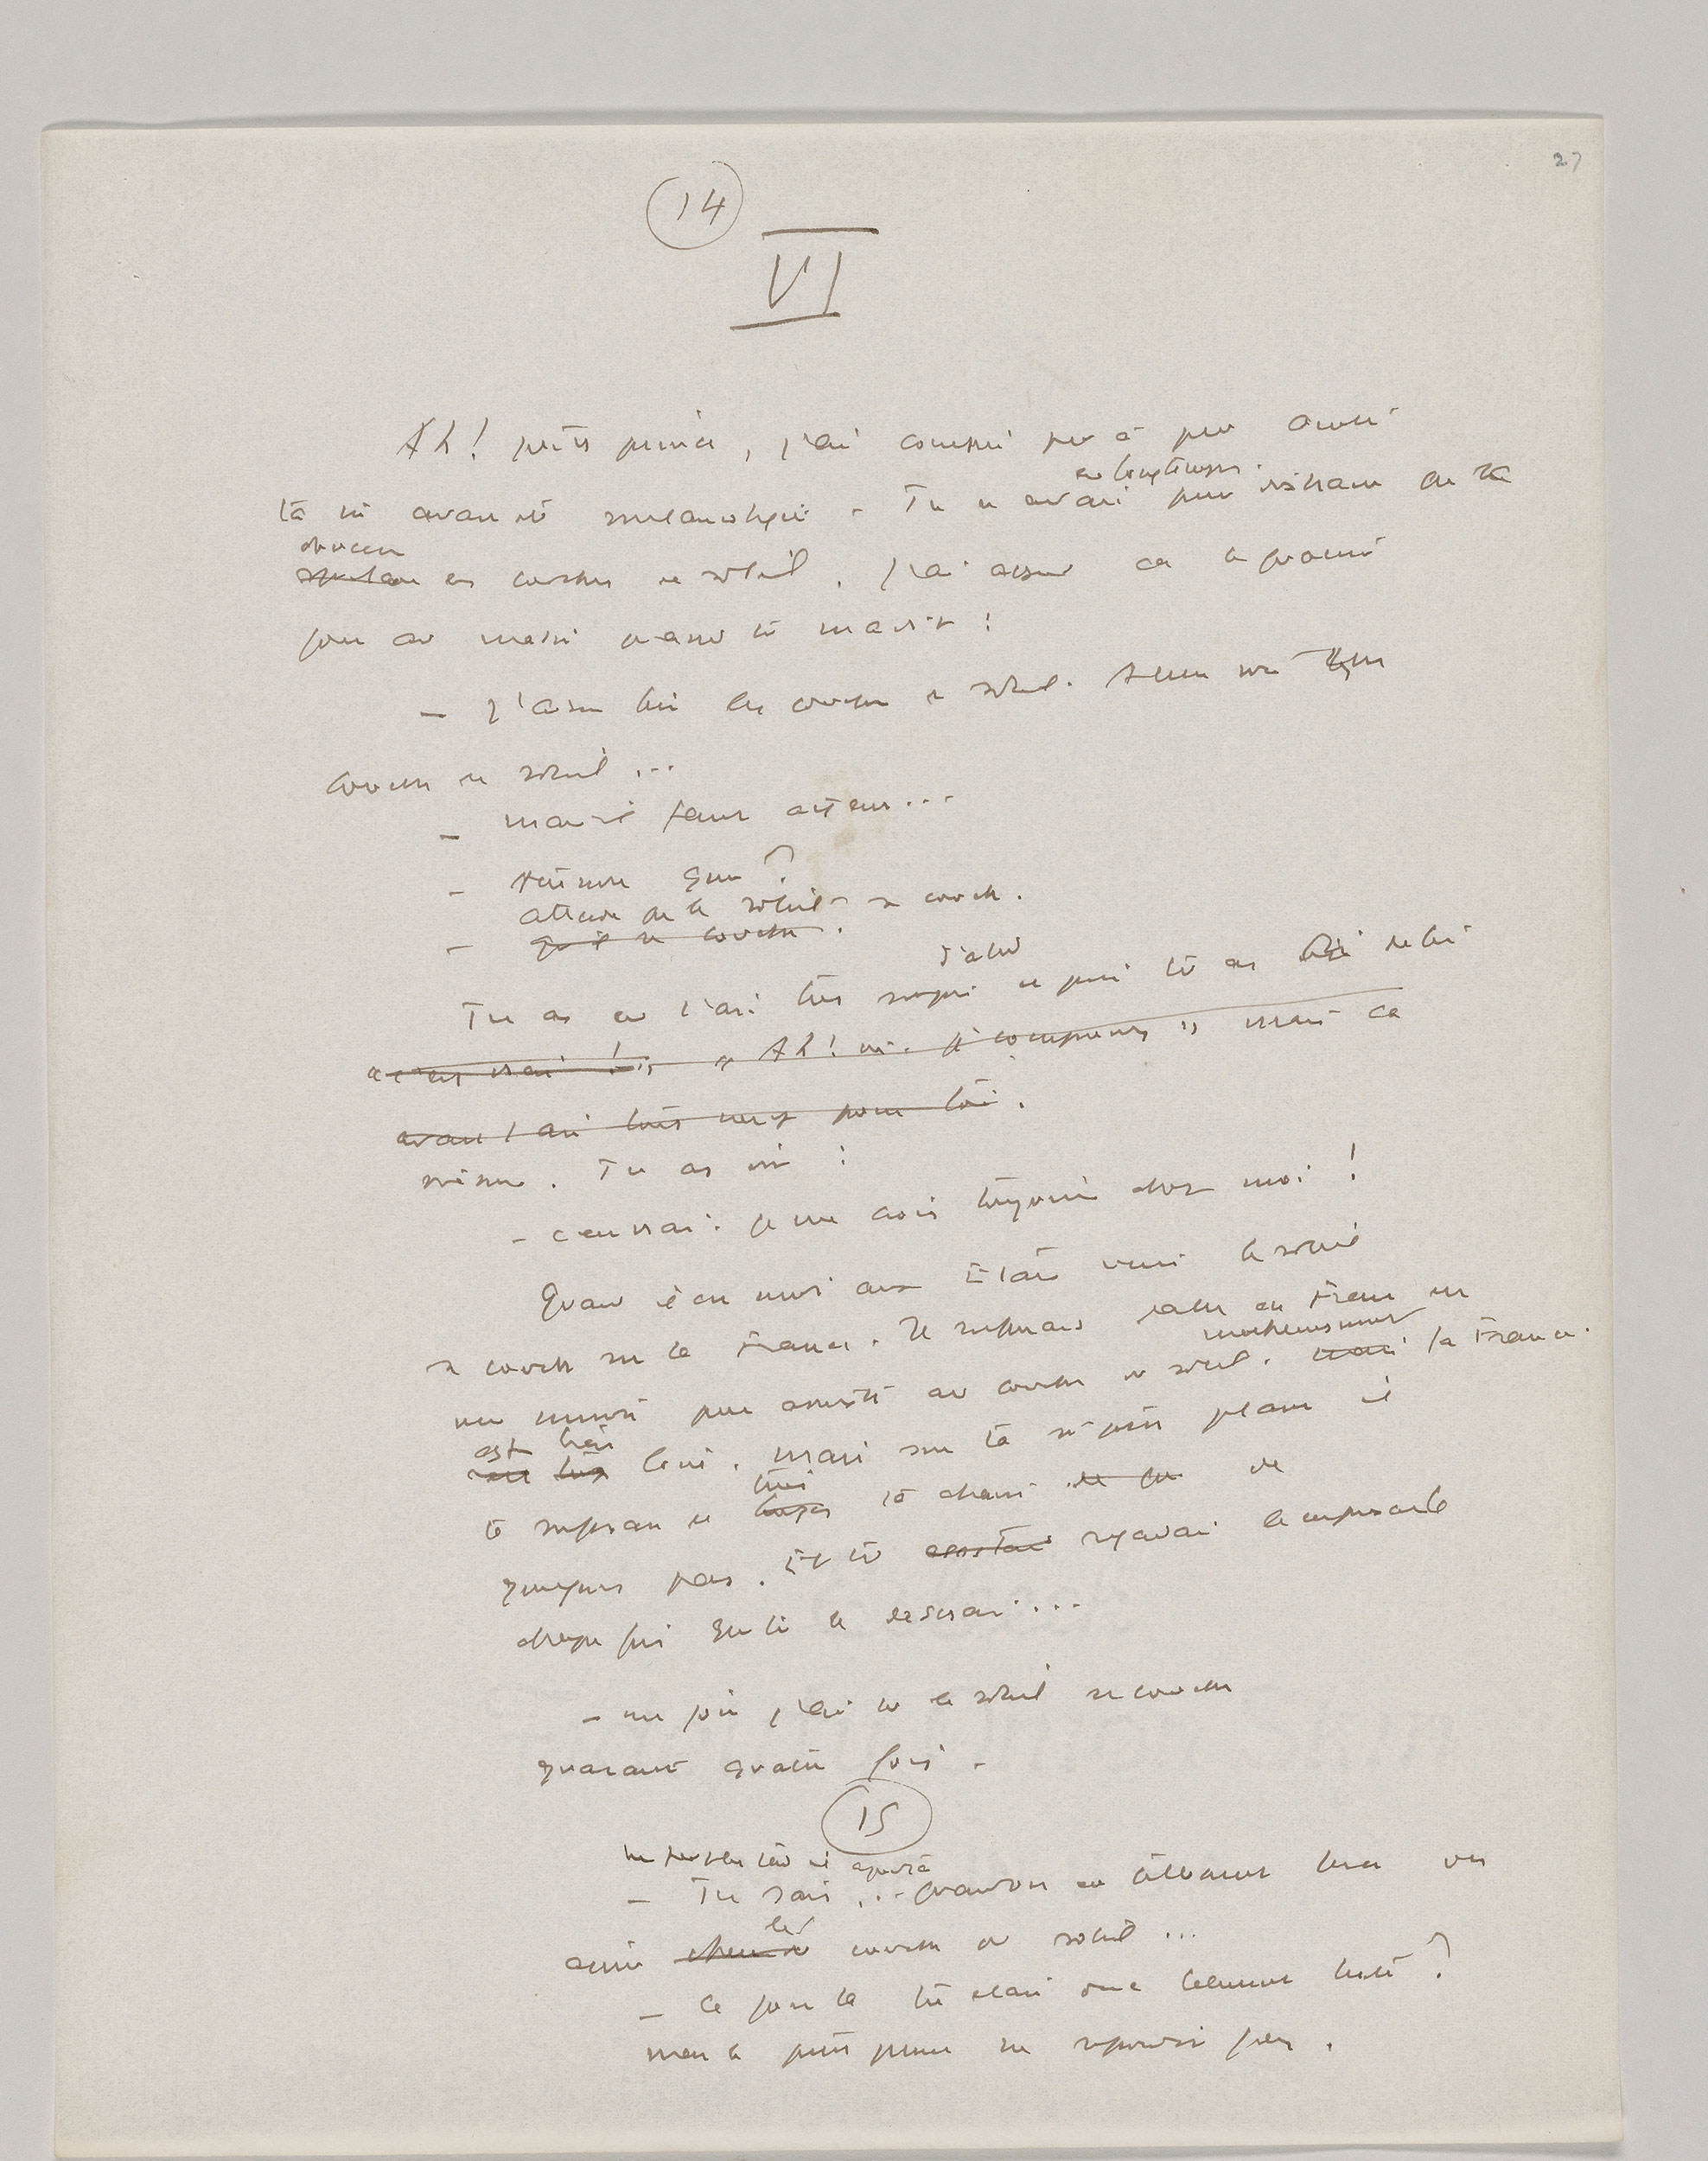 27
14
VI
Ah! petit prince, j'ai compris peu à peu ainsi
eu longtemps
ta vie avant et mélancolique. Tu n'avais pour distraction que la
douceur
des couchers de soleil. J'ai appris ça le quatrième
jour au matin quand tu m'as dit :
- J'aime bien les couchers de soleil. Allons voir un
coucher de soleil ...
- mais il faut attendre ...
- Attendre quoi ?
attendre que le soleil se couche.
- qu'il se couche.
d'abord
Tu as eu l'air très surpris et puis tu as ri de toi
" c'est vrai ! " " Ah! oui. Je comprends " mais ça
avait l'air très neuf pour toi.
même. Tu as dit :
- c'est vrai. je me crois toujours chez moi !
Quand il est midi aux Etats unis le soleil
se couche sur la France. Il suffirait d'aller en France en
malheureusement
une minute pour assister au coucher de soleil. mais la France
est bien
est très loin. mais sur ta si petite planète il
tirer
te suffisait de ta chaise de
quelques pas. Et tu assistais regardais le crépuscule
chaque fois que tu le désirais ...
- un jour j'ai vu le soleil se coucher
quarante quatre fois.
15
un peu plus tard il ajouta
- Tu sais ... quand on est tellement triste on
les
aime couchers de soleil ...
- le jour là tu étais donc tellement triste ?
mais le petit prince ne répondit pas.